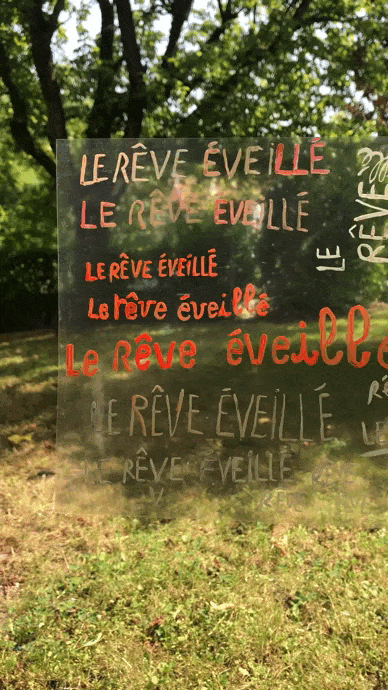 LE RÊVE ÉVEILLÉ
LE RÊVE ÉVEILLÉ
LE RÊVE ÉVEILLÉ
Le rêve éveillé
Le Rêve éveillé
LE RÊVE ÉVEILLÉ
LE RÊVE ÉVEILLÉ
LE
RÊVE